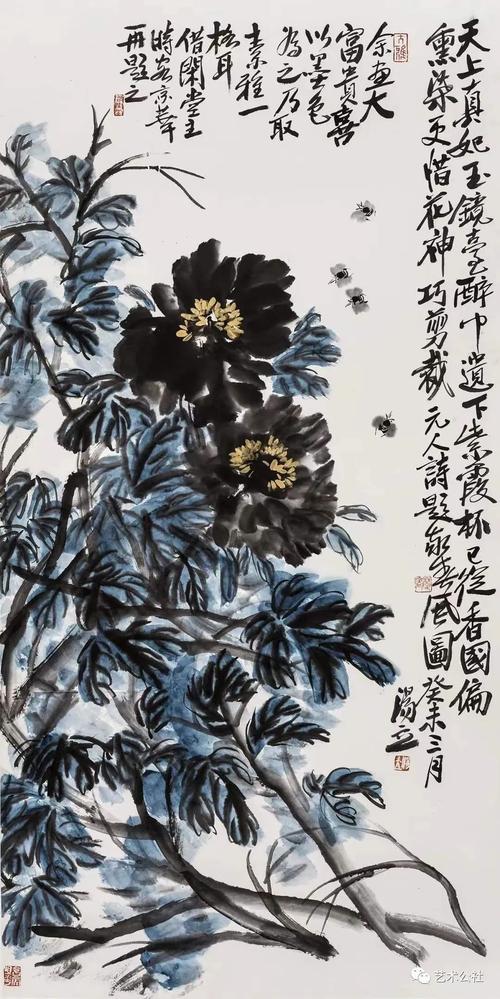 天上真妃玉鏡臺醉中遺下紫霞杯已從香國偏
熏染更惜花神巧剪裁 元人詩題春風圖 癸未三月
湯立
余畫大
富貴喜
以墨色
為之乃取
素雅一
格耳
借閑堂主
時客京華
再題之
艺术公社